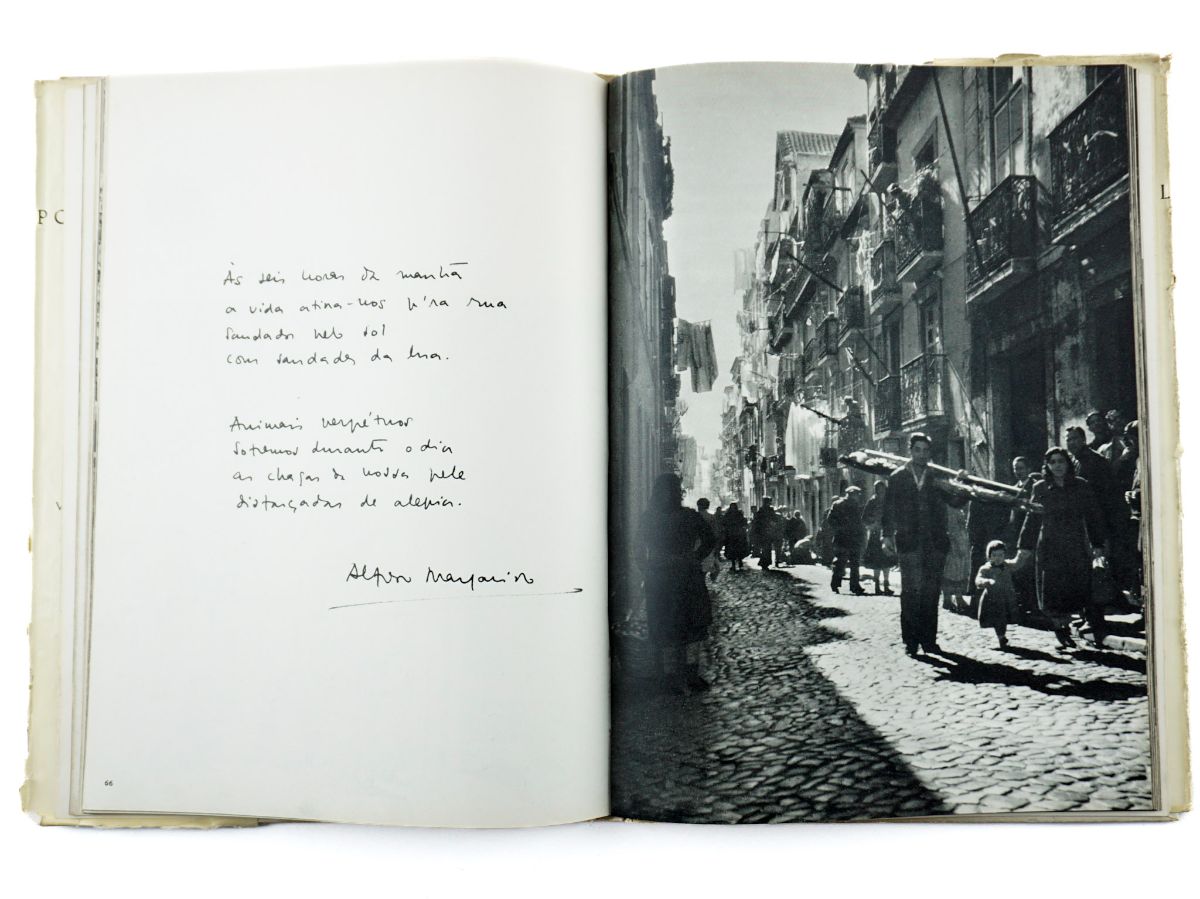 P O
Às seis horas da manhã
a vida atira-nos p'ra rua
saudados pelo sol
com saudades da lua.
Animais perpétuos
sofremos durante o dia
as chagas da nossa pele
disfarçadas de alegria.
Alfredo Margarido
66
L